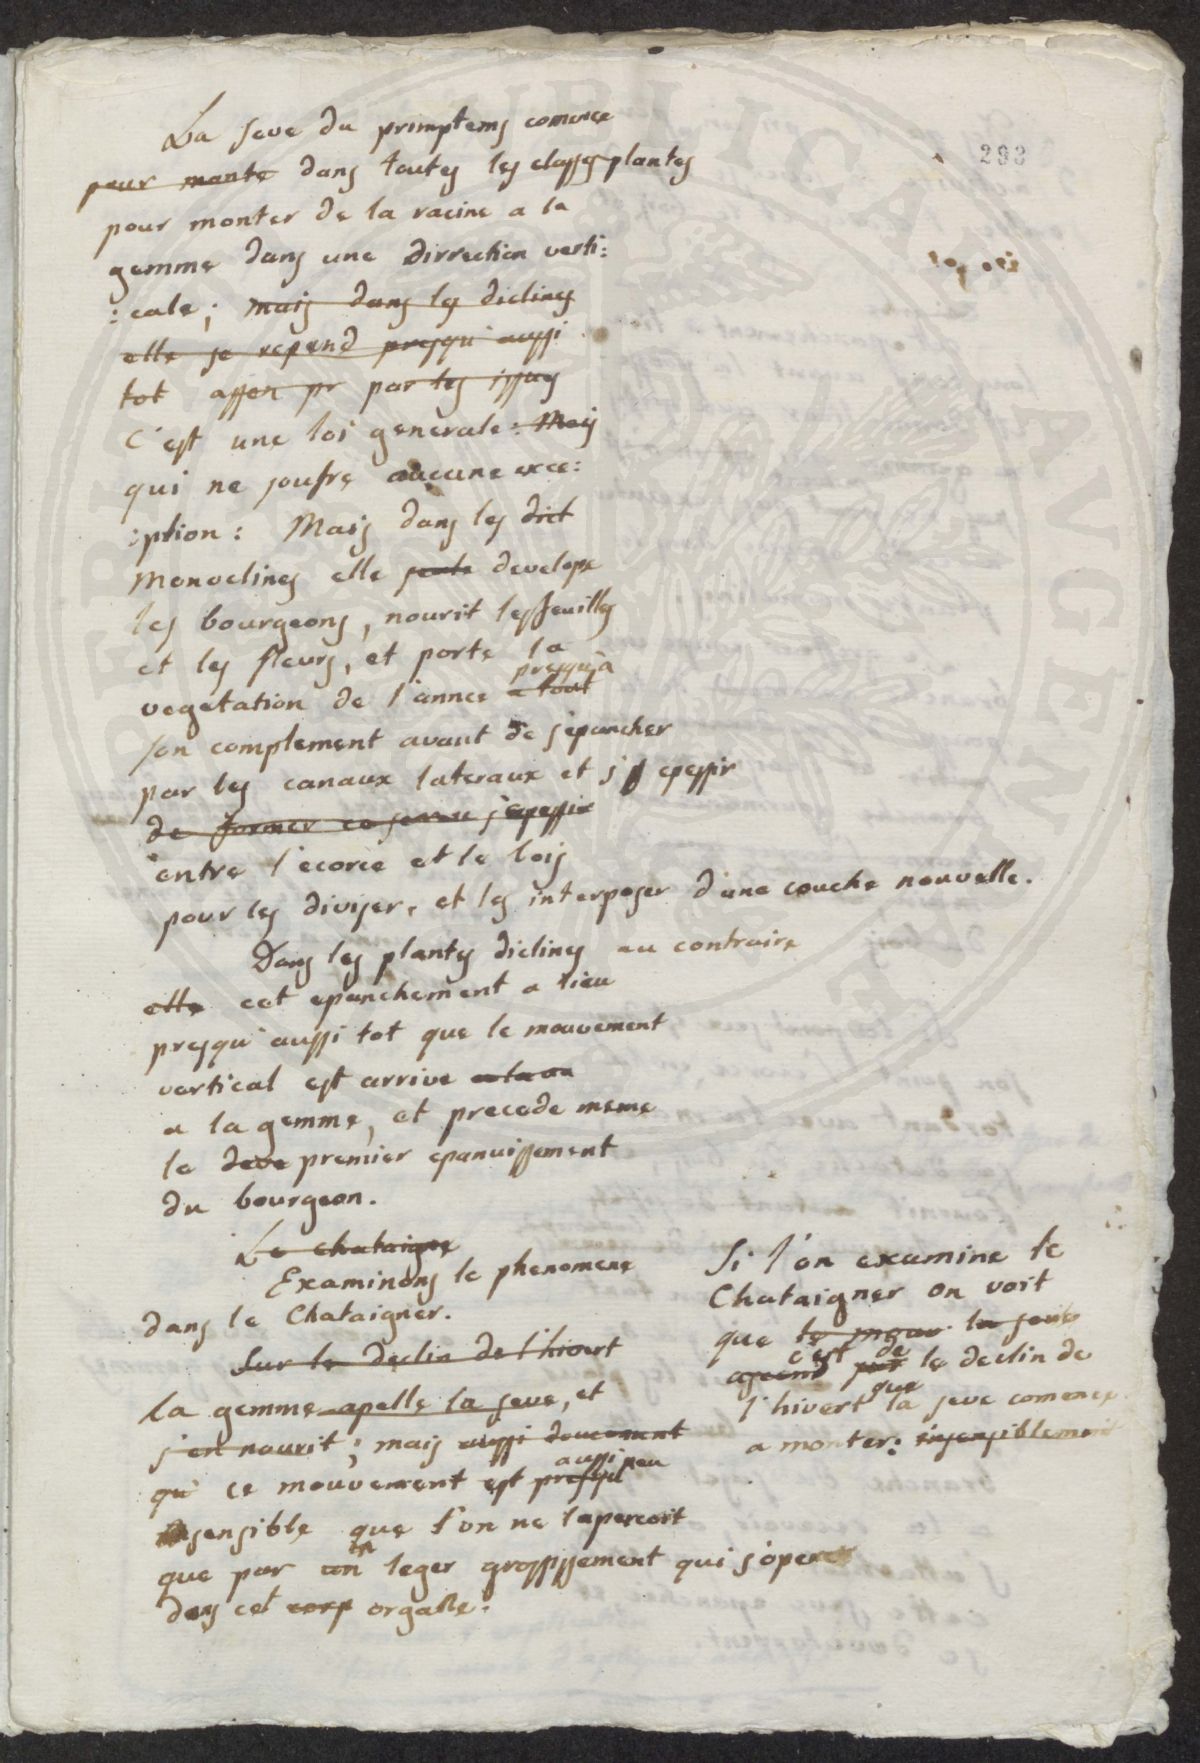 293
La seve du primptems comence
pour monte dans toutes les classes plantes
pour monter de la racine a la
gemme dans une dirrection verti:
:cale; mais dans les diclines
elle se repend presqu'aussi
tot par les issues
C'est une loi generale: Mais
qui ne soufre aucune exce:
:ption: Mais dans les dict
Monoclines elle develope
les bourgeons, nourit les feuilles
et les fleurs, et porte la
presqu'a
vegetation de l'annee a tout
son complement avant de s'epancher
par les canaux lateraux et s'epessir
de former ce s'epessir
entre l'ecorce et le bois
pour les diviser, et les interposer d'une couche nouvelle.
Dans les plantes diclines au contraire
elle cet epanchement a lieu
presqu'aussi tot que le mouvement
vertical est arrive
a la gemme, et precede meme
le premier epanuissement
du bourgeon.
Le chataigner
Examinons le phenomene
dans le Chataigner.
Sur le declin de l'hivert
la gemme apelle la seve, et
s'en nourit; mais aussi doucement
aussi peu
qu' ce mouvement est presqu
sensible que l'on ne l'apercoit
un
que par leger grossissement qui s'opere
dans cet corp organe.
Si l'on examine le
Chataigner on voit
que la seve
c'est de
le declin de
que
l'hivert la seve comence
a monter: insensiblement